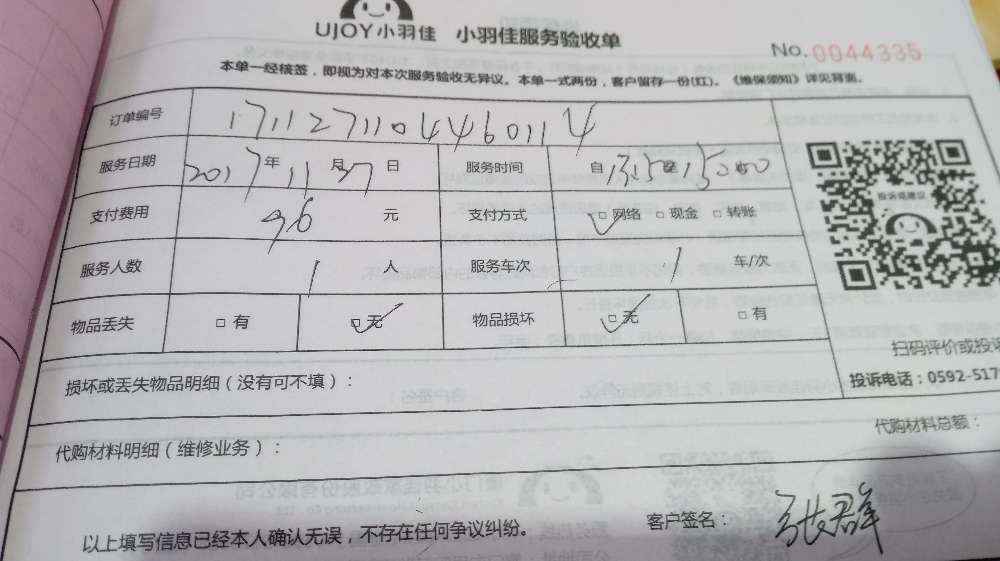 UJOY小羽佳 小羽佳服务验收单
No. 0044335
本单一经核签，即视为对本次服务验收无异议。本单一式两份，客户留存一份(红)。《维保须知》详见背面。
订单编号 1711271104460114
服务日期 2017年11月27日 服务时间 自 至15:00
支付费用 96 元 支付方式 □网络 □现金 □转账
服务人数 1 人 服务车次 1 车/次
物品丢失 □有 □无 物品损坏 □无 □有
投诉或建议
扫码评价或投诉
投诉电话：0592-517
损坏或丢失物品明细（没有可不填）：
代购材料明细（维修业务）：
代购材料总额：
以上填写信息已经本人确认无误，不存在任何争议纠纷。
客户签名：张群